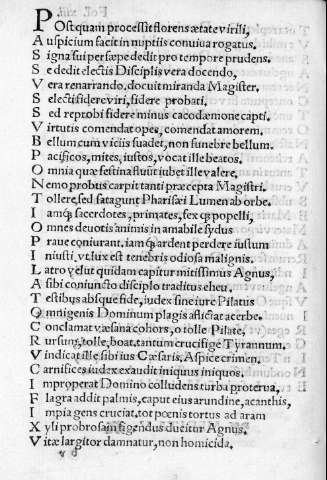 POstquam processit florens ætate virili,
Auspicium facit in nuptiis conuiua rogatus.
Signa sui persæpe dedit pro tempore prudens.
Se dedit electis Discipulis vera docendo,
Vera renarrando, docuit miranda Magister,
Selecti fidere viri, fidere probati.
Sed reprobi fidere minus cacodæmone capti.
Virtutis comendat opes, comendat amorem.
Bellum cum viciis suadet, non funebre bellum.
Pacificos, mites, iustos, vocat ille beatos.
Omnia quæ festina fluūt iubet ille valere.
Nemo probus carpit tanti præcepta Magistri.
Tollere, sed satagunt Pharisæi Lumen ab orbe.
Iamq; sacerdotes, primates, sexq; popelli,
Omnes deuotis animis in amabile sydus
Praue coniurant. iamq; ardent perdere iustum
Iniusti, vt lux est tenebris odiosa malignis.
Latro velut quidam capitur mitissimus Agnus,
A sibi coniuncto disciplo traditus eheu.
Testibus absque fide, iudex sine iure Pilatus
Omnigenis Dominum plagis afflictat acerbe.
Conclamat væsana cohors, o tolle Pilate,
Rursung, tolle, boat, tantum crucifige Tyrannum.
Vindicat ille sibi ius Cæsaris, Aspice crimen.
Carnifices iudex exaudit iniquus iniquos.
Improperat Domino colludens turba proterua,
Flagra addit palmis, caput eius arundine, acanthis,
Impia gens cruciat, tot pœnis tortus ad aram
Xyli probrosam figendus ducitur Agnus.
Vitæ largitor damnatur, non homicida.